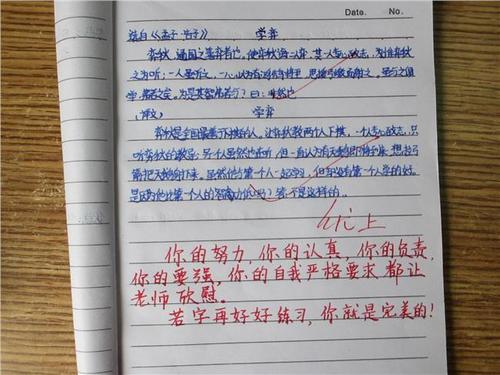 Date. No.
选自《孟子·告子》 学弈
弈秋，通国之善弈者也。使弈秋诲二人弈，其一人专心致志，惟弈秋
之为听；一人虽听之，一心以为有鸿鹄将至，思援弓缴而射之。虽与之俱
学，弗若之矣。为是其智弗若与？曰：非然也
（译文） 学弈
弈秋是全国最善于下棋的人。让弈秋教两个人下棋，一个人专心致志，只
听弈秋的教导；另一个虽然也在听，但一直认为有天鹅
是因为他比第一个人的智商 吗？答：不是这样的。
优上
你的努力，你的认真，你的负责，
你的要强，你的自我严格要求都让
老师欣慰。
若字再好好练习，你就是完美的！